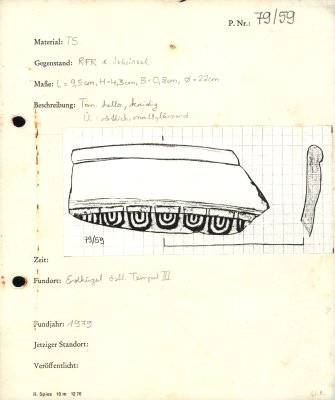 P. Nr.: 79/59
Material: TS
Gegenstand: RFR e. Schüssel
Maße: L = 9,5cm, H = 4,3cm, B = 0,8cm, Ø = 22cm
Beschreibung: Ton: hellor., kreidig
Ü.: rötlich, mattglänzend
79/59
Zeit:
Fundort: Erdhügel östl. Tempel III
Fundjahr: 1979
Jetziger Standort:
Veröffentlicht:
R. Spies 10 m 12 78